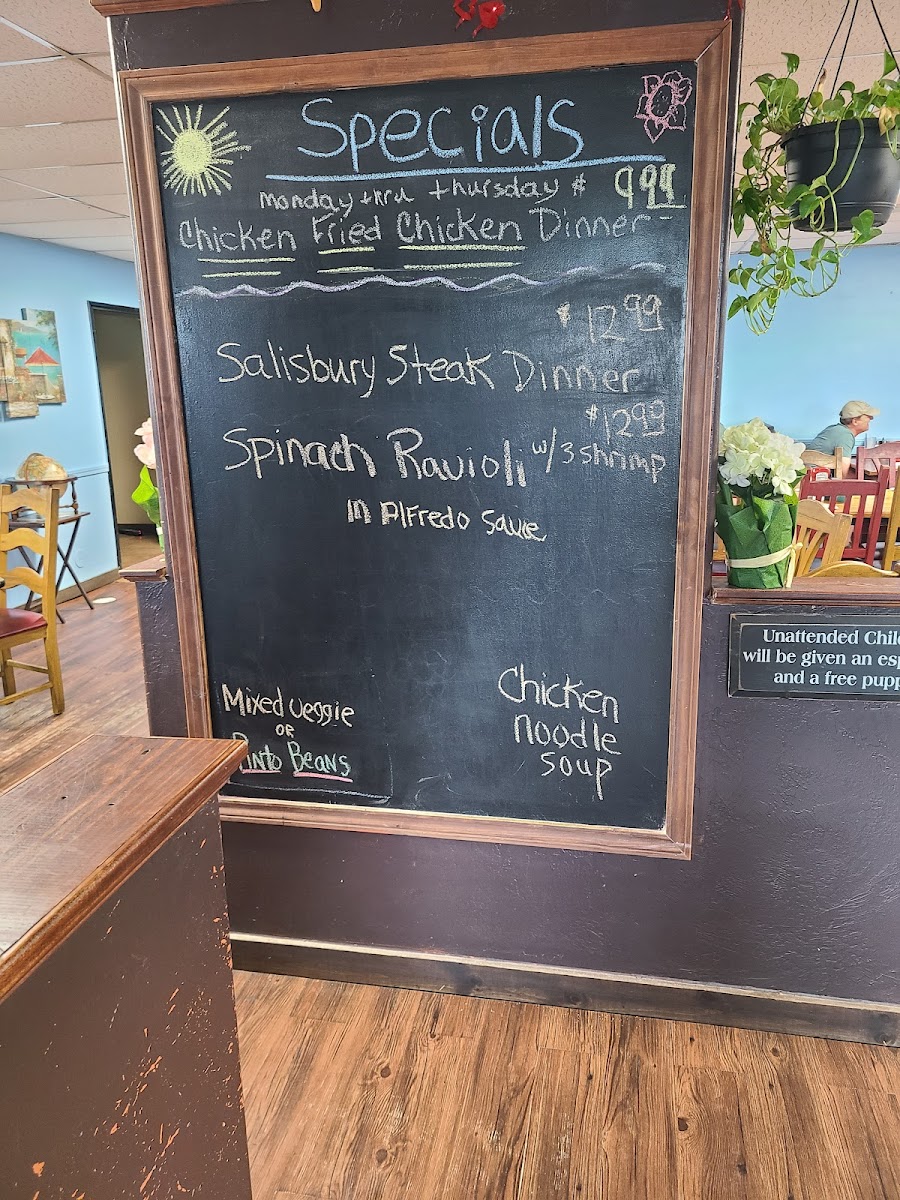 Specials
monday thru thursday $ 9.99
Chicken Fried Chicken Dinner
$12.99
Salisbury Steak Dinner
$12.99
Spinach Ravioli w/3 shrimp
in Alfredo Sauce
Mixed veggie
OR
Pinto Beans
Chicken
noodle
soup
Unattended Chil
will be given an esp
and a free pupp